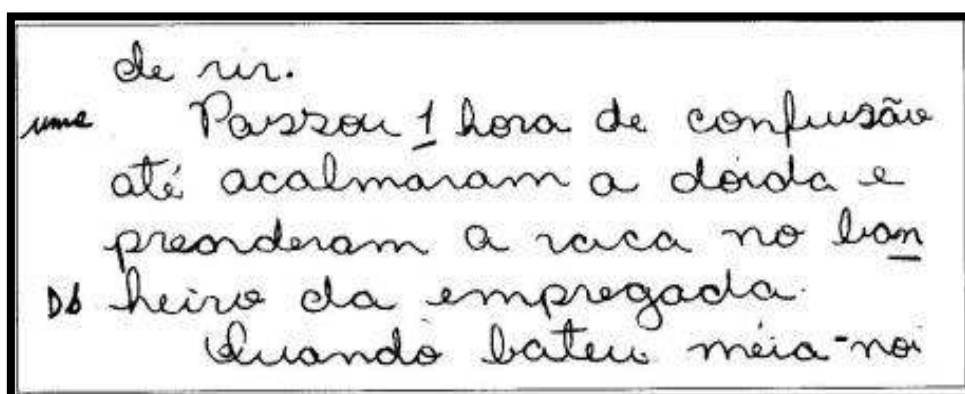 de rir.
uma Passou 1 hora de confusão
até acalmaram a doida e
preanderam a vaca no ban
DS heiro da empregada.
Quando bateu meia-noi